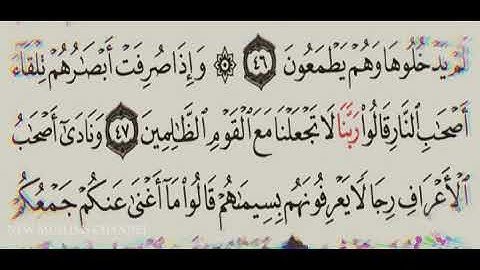 لَمْ يَدْخُلُوهَا وَهُمْ يَطْمَعُونَ ٤٦ ۞ وَإِذَا صُرِفَتْ أَبْصَٰرُهُمْ تِلْقَآءَ
أَصْحَٰبِ ٱلنَّارِ قَالُوا۟ رَبَّنَا لَا تَجْعَلْنَا مَعَ ٱلْقَوْمِ ٱلظَّٰلِمِينَ ٤٧ وَنَادَىٰٓ أَصْحَٰبُ
ٱلْأَعْرَافِ رِجَالًا يَعْرِفُونَهُم بِسِيمَىٰهُمْ قَالُوا۟ مَآ أَغْنَىٰ عَنكُمْ جَمْعُكُمْ
NEW MUSLIMS CHANNEL